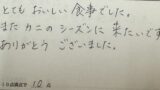 とても おいしい 食事でした。
また カニの シーズンに 来たいです
ありがとう ございました。
10点